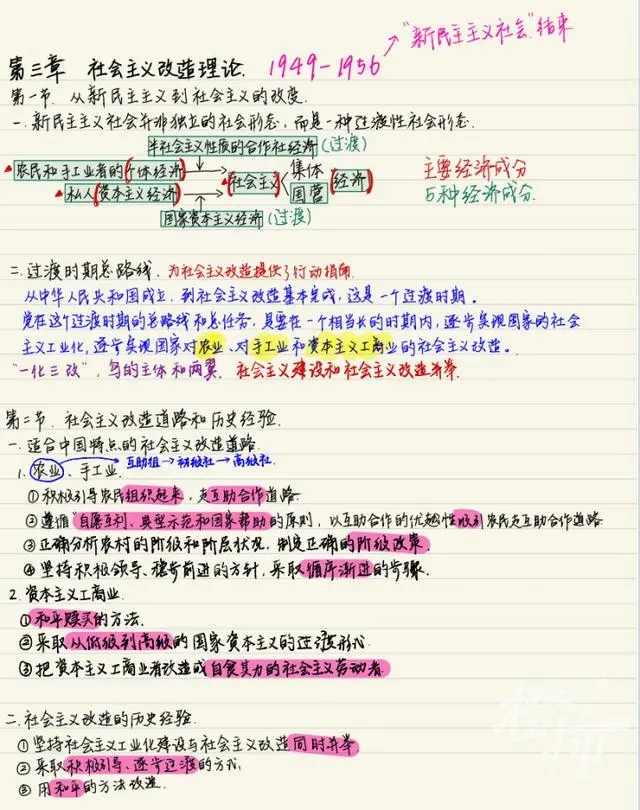 "新民主主义社会"结束
第三章 社会主义改造理论. 1949-1956
第一节. 从新民主主义到社会主义的改变.
一. 新民主主义社会并非独立的社会形态, 而是一种过渡性社会形态.
半社会主义性质的合作社经济(过渡)
农民和手工业者的(个体经济) 集体 主要经济成分
(社会主义 经济)
私人(资本主义经济) 国营 5种经济成分.
国家资本主义经济(过渡)
二. 过渡时期总路线、为社会主义改造提供了行动指南
从中华人民共和国成立, 到社会主义改造基本完成, 这是一个过渡时期.
党在这个过渡时期的总路线和总任务, 是要在一个相当长的时期内, 逐步实现国家的社会
主义工业化, 逐步实现国家对农业、对手工业和资本主义工商业的社会主义改造。
"一化三改", 鸟的主体和两翼. 社会主义建设和社会主义改造并举.
第二节. 社会主义改造道路和历史经验.
一. 适合中国特点的社会主义改造道路.
1. 农业、手工业. 互助组→初级社→高级社.
①积极引导农民组织起来, 走互助合作道路.
②遵循"自愿互利、典型示范和国家帮助的原则, 以互助合作的优越性吸引农民走互助合作道路
③正确分析农村的阶级和阶层状况, 制定正确的阶级政策.
④坚持积极领导、稳步前进的方针, 采取循序渐进的步骤.
2. 资本主义工商业.
①和平赎买的方法.
②采取从低级到高级的国家资本主义的过渡形式.
③把资本主义工商业者改造成自食其力的社会主义劳动者.
二. 社会主义改造的历史经验.
①坚持社会主义工业化建设与社会主义改造同时并举.
②采取积极引导、逐步过渡的方式.
③用和平的方法改造.